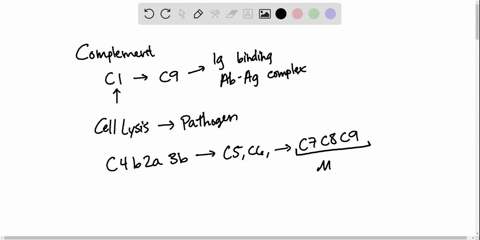 Complement
C1 → C9 → Ig binding
Ab-Ag complex
↑
Cell Lysis → Pathogen
C4b2a3b → C5, C6, → C7C8C9
M